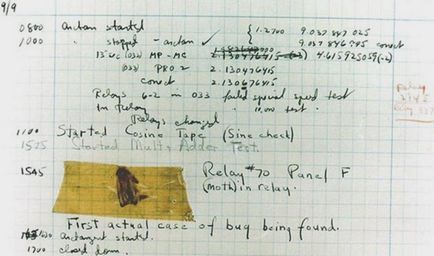 9/9
0800 antan started
1000 " stopped - antan ✓ { 1.2700 9.037 847 025
9.037 846 995 conect
13"uc (032) MP-MC 2.130476415 4.615925059(-2)
(033) PRO 2 2.130476415
conect 2.130676415
Relays 6-2 in 033 failed special speed test
in Relay " 10.000 test.
Relays changed
1100 Started Cosine Tape (Sine check)
1525 Started Mult+Adder Test.
1545 Relay #70 Panel F
(moth) in relay.
First actual case of bug being found.
antangent started.
1700 closed down.